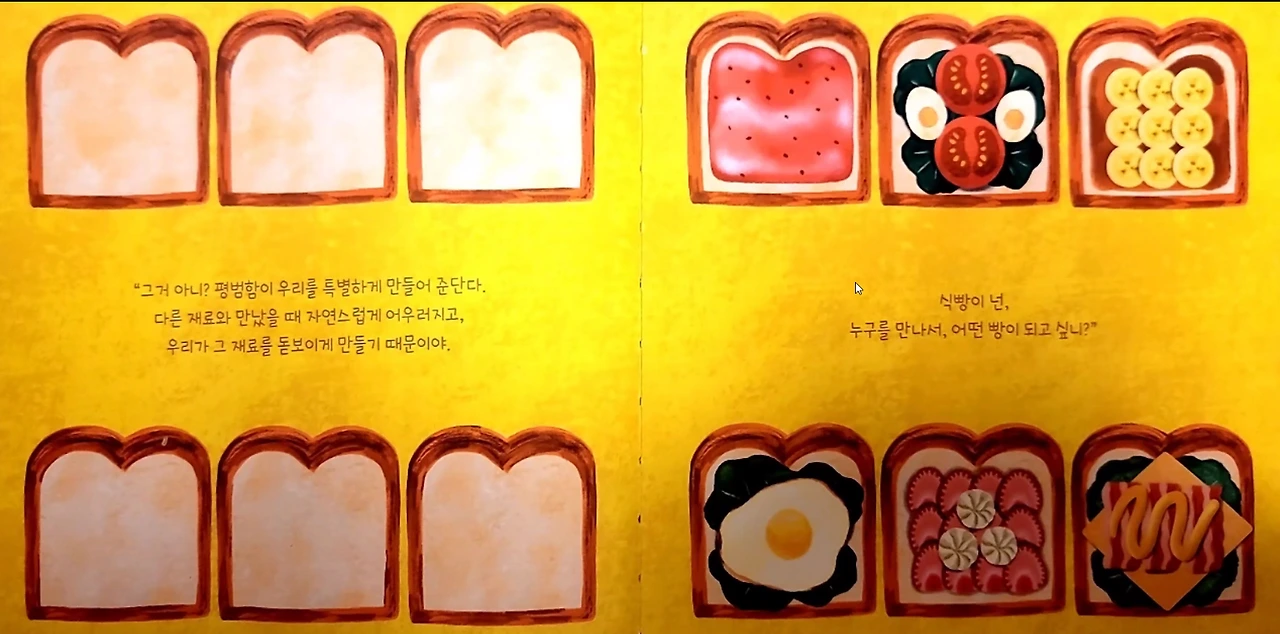 “그거 아니? 평범함이 우리를 특별하게 만들어 준단다.
다른 재료와 만났을 때 자연스럽게 어우러지고,
우리가 그 재료를 돋보이게 만들기 때문이야.
식빵이 넌,
누구를 만나서, 어떤 빵이 되고 싶니?”